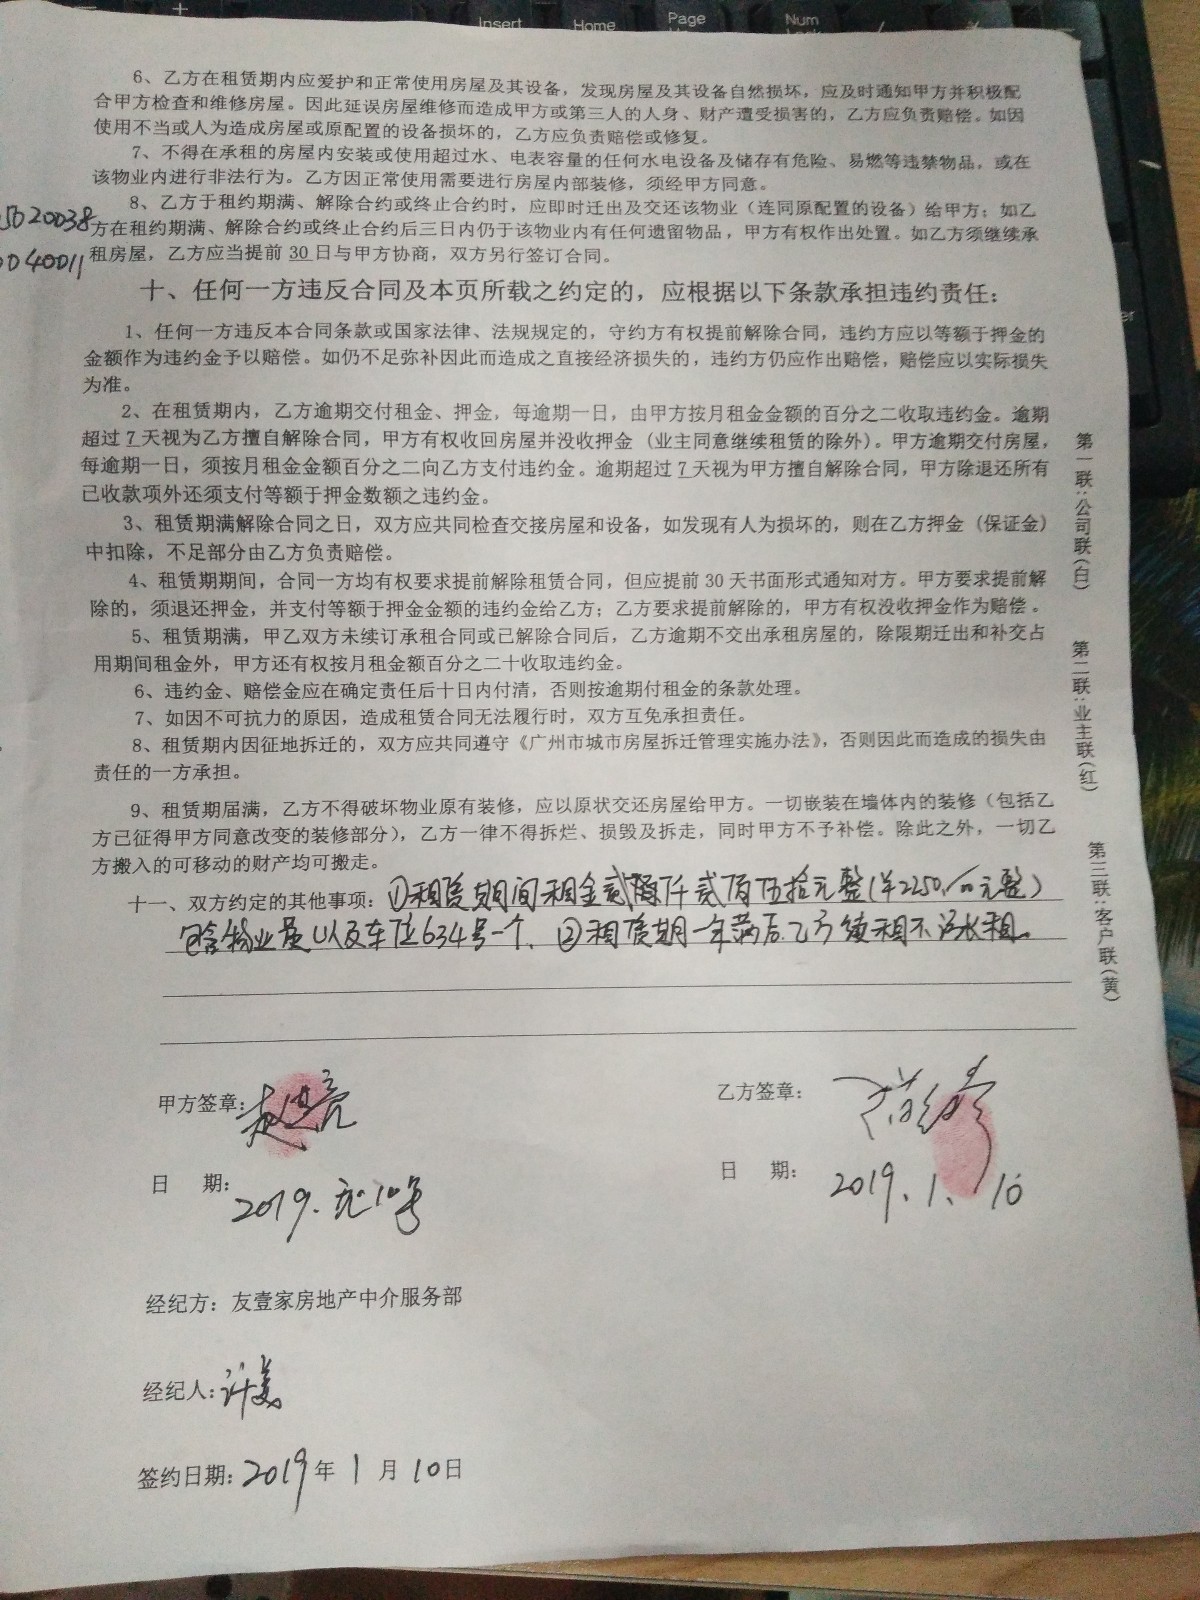 Insert
Home
Page
Num
6、乙方在租赁期内应爱护和正常使用房屋及其设备，发现房屋及其设备自然损坏，应及时通知甲方并积极配
合甲方检查和维修房屋。因此延误房屋维修而造成甲方或第三人的人身、财产遭受损害的，乙方应负责赔偿。如因
使用不当或人为造成房屋或原配置的设备损坏的，乙方应负责赔偿或修复。
7、不得在承租的房屋内安装或使用超过水、电表容量的任何水电设备及储存有危险、易燃等违禁物品，或在
该物业内进行非法行为。乙方因正常使用需要进行房屋内部装修，须经甲方同意。
8、乙方于租约期满、解除合约或终止合约时，应即时迁出及交还该物业（连同原配置的设备）给甲方；如乙
方在租约期满、解除合约或终止合约后三日内仍于该物业内有任何遗留物品，甲方有权作出处置。如乙方须继续承
租房屋，乙方应当提前 30 日与甲方协商，双方另行签订合同。
5020038
040011
十、任何一方违反合同及本页所载之约定的，应根据以下条款承担违约责任：
1、任何一方违反本合同条款或国家法律、法规规定的，守约方有权提前解除合同，违约方应以等额于押金的
金额作为违约金予以赔偿。如仍不足弥补因此而造成之直接经济损失的，违约方仍应作出赔偿，赔偿应以实际损失
为准。
2、在租赁期内，乙方逾期交付租金、押金，每逾期一日，由甲方按月租金金额的百分之二收取违约金。逾期
超过 7 天视为乙方擅自解除合同，甲方有权收回房屋并没收押金（业主同意继续租赁的除外）。甲方逾期交付房屋，
每逾期一日，须按月租金金额百分之二向乙方支付违约金。逾期超过 7 天视为甲方擅自解除合同，甲方除退还所有
已收款项外还须支付等额于押金数额之违约金。
3、租赁期满解除合同之日，双方应共同检查交接房屋和设备，如发现有人为损坏的，则在乙方押金（保证金）
中扣除，不足部分由乙方负责赔偿。
4、租赁期期间，合同一方均有权要求提前解除租赁合同，但应提前 30 天书面形式通知对方。甲方要求提前解
除的，须退还押金，并支付等额于押金金额的违约金给乙方；乙方要求提前解除的，甲方有权没收押金作为赔偿。
5、租赁期满，甲乙双方未续订承租合同或已解除合同后，乙方逾期不交出承租房屋的，除限期迁出和补交占
用期间租金外，甲方还有权按月租金额百分之二十收取违约金。
6、违约金、赔偿金应在确定责任后十日内付清，否则按逾期付租金的条款处理。
7、如因不可抗力的原因，造成租赁合同无法履行时，双方互免承担责任。
8、租赁期内因征地拆迁的，双方应共同遵守《广州市城市房屋拆迁管理实施办法》，否则因此而造成的损失由
责任的一方承担。
9、租赁期届满，乙方不得破坏物业原有装修，应以原状交还房屋给甲方。一切嵌装在墙体内的装修（包括乙
方已征得甲方同意改变的装修部分），乙方一律不得拆烂、损毁及拆走，同时甲方不予补偿。除此之外，一切乙
方搬入的可移动的财产均可搬走。
十一、双方约定的其他事项：①租赁期间租金贰仟贰佰伍拾元整（￥2250/00元整）
包含物业费以及车位634号一个、②租赁期一年满后.乙方续租不涨租。
第一联：公司联（白）
第二联：业主联（红）
第三联：客户联（黄）
甲方签章：
乙方签章：
日 期：2019.元.10号
日 期：2019.1.10
经纪方：友壹家房地产中介服务部
经纪人：许美
签约日期：2019年1月10日